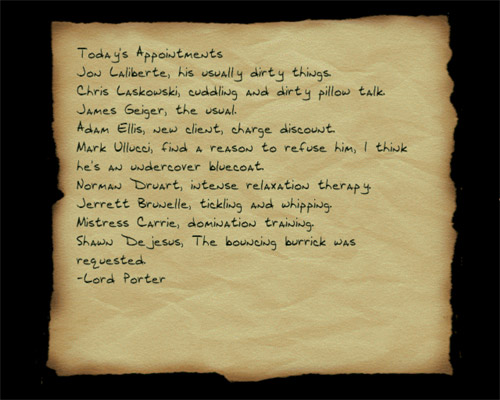 Today's Appointments
Jon Laliberte, his usually dirty things.
Chris Laskowski, cuddling and dirty pillow talk.
James Geiger, the usual.
Adam Ellis, new client, charge discount.
Mark Ullucci, find a reason to refuse him, I think
he's an undercover bluecoat.
Norman Druart, intense relaxation therapy.
Jerrett Brunelle, tickling and whipping.
Mistress Carrie, domination training.
Shawn Dejesus, The bouncing burrick was
requested.
-Lord Porter